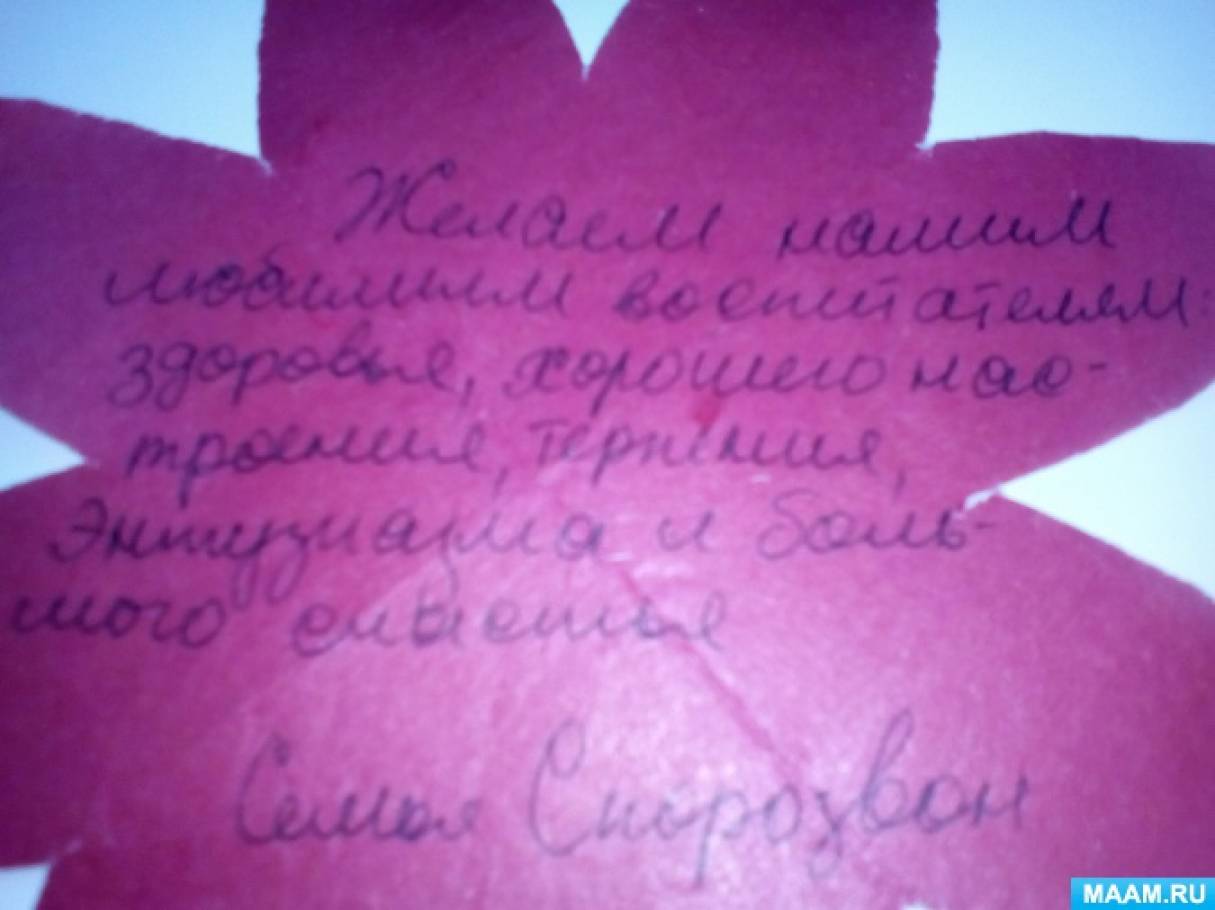 Желаем нашим
любимым воспитателям:
здоровья, хорошего нас-
троения, терпения,
Энтузиазма и боль-
шого счастья
Семья Скорозвон
MAAM.RU